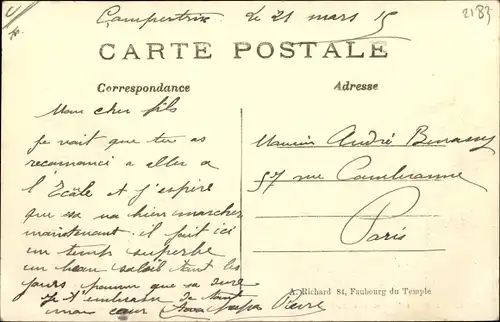 le 21 mars 15
2183
CARTE POSTALE
Correspondance
Adresse
Mon cher fils
Je voit que tu as
recommancé a aller a
l'Ecole et j'espère
que sa va bien marcher
maintenant. il fait ici
un temps superbe
un beau soleil tout les
jours pourvu que sa dure
Je t'embrasse de tout
mon cœur ton papa Pierre
Monsieur André Benassy
57 rue Cambronne
Paris
A. Richard 84, Faubourg du Temple